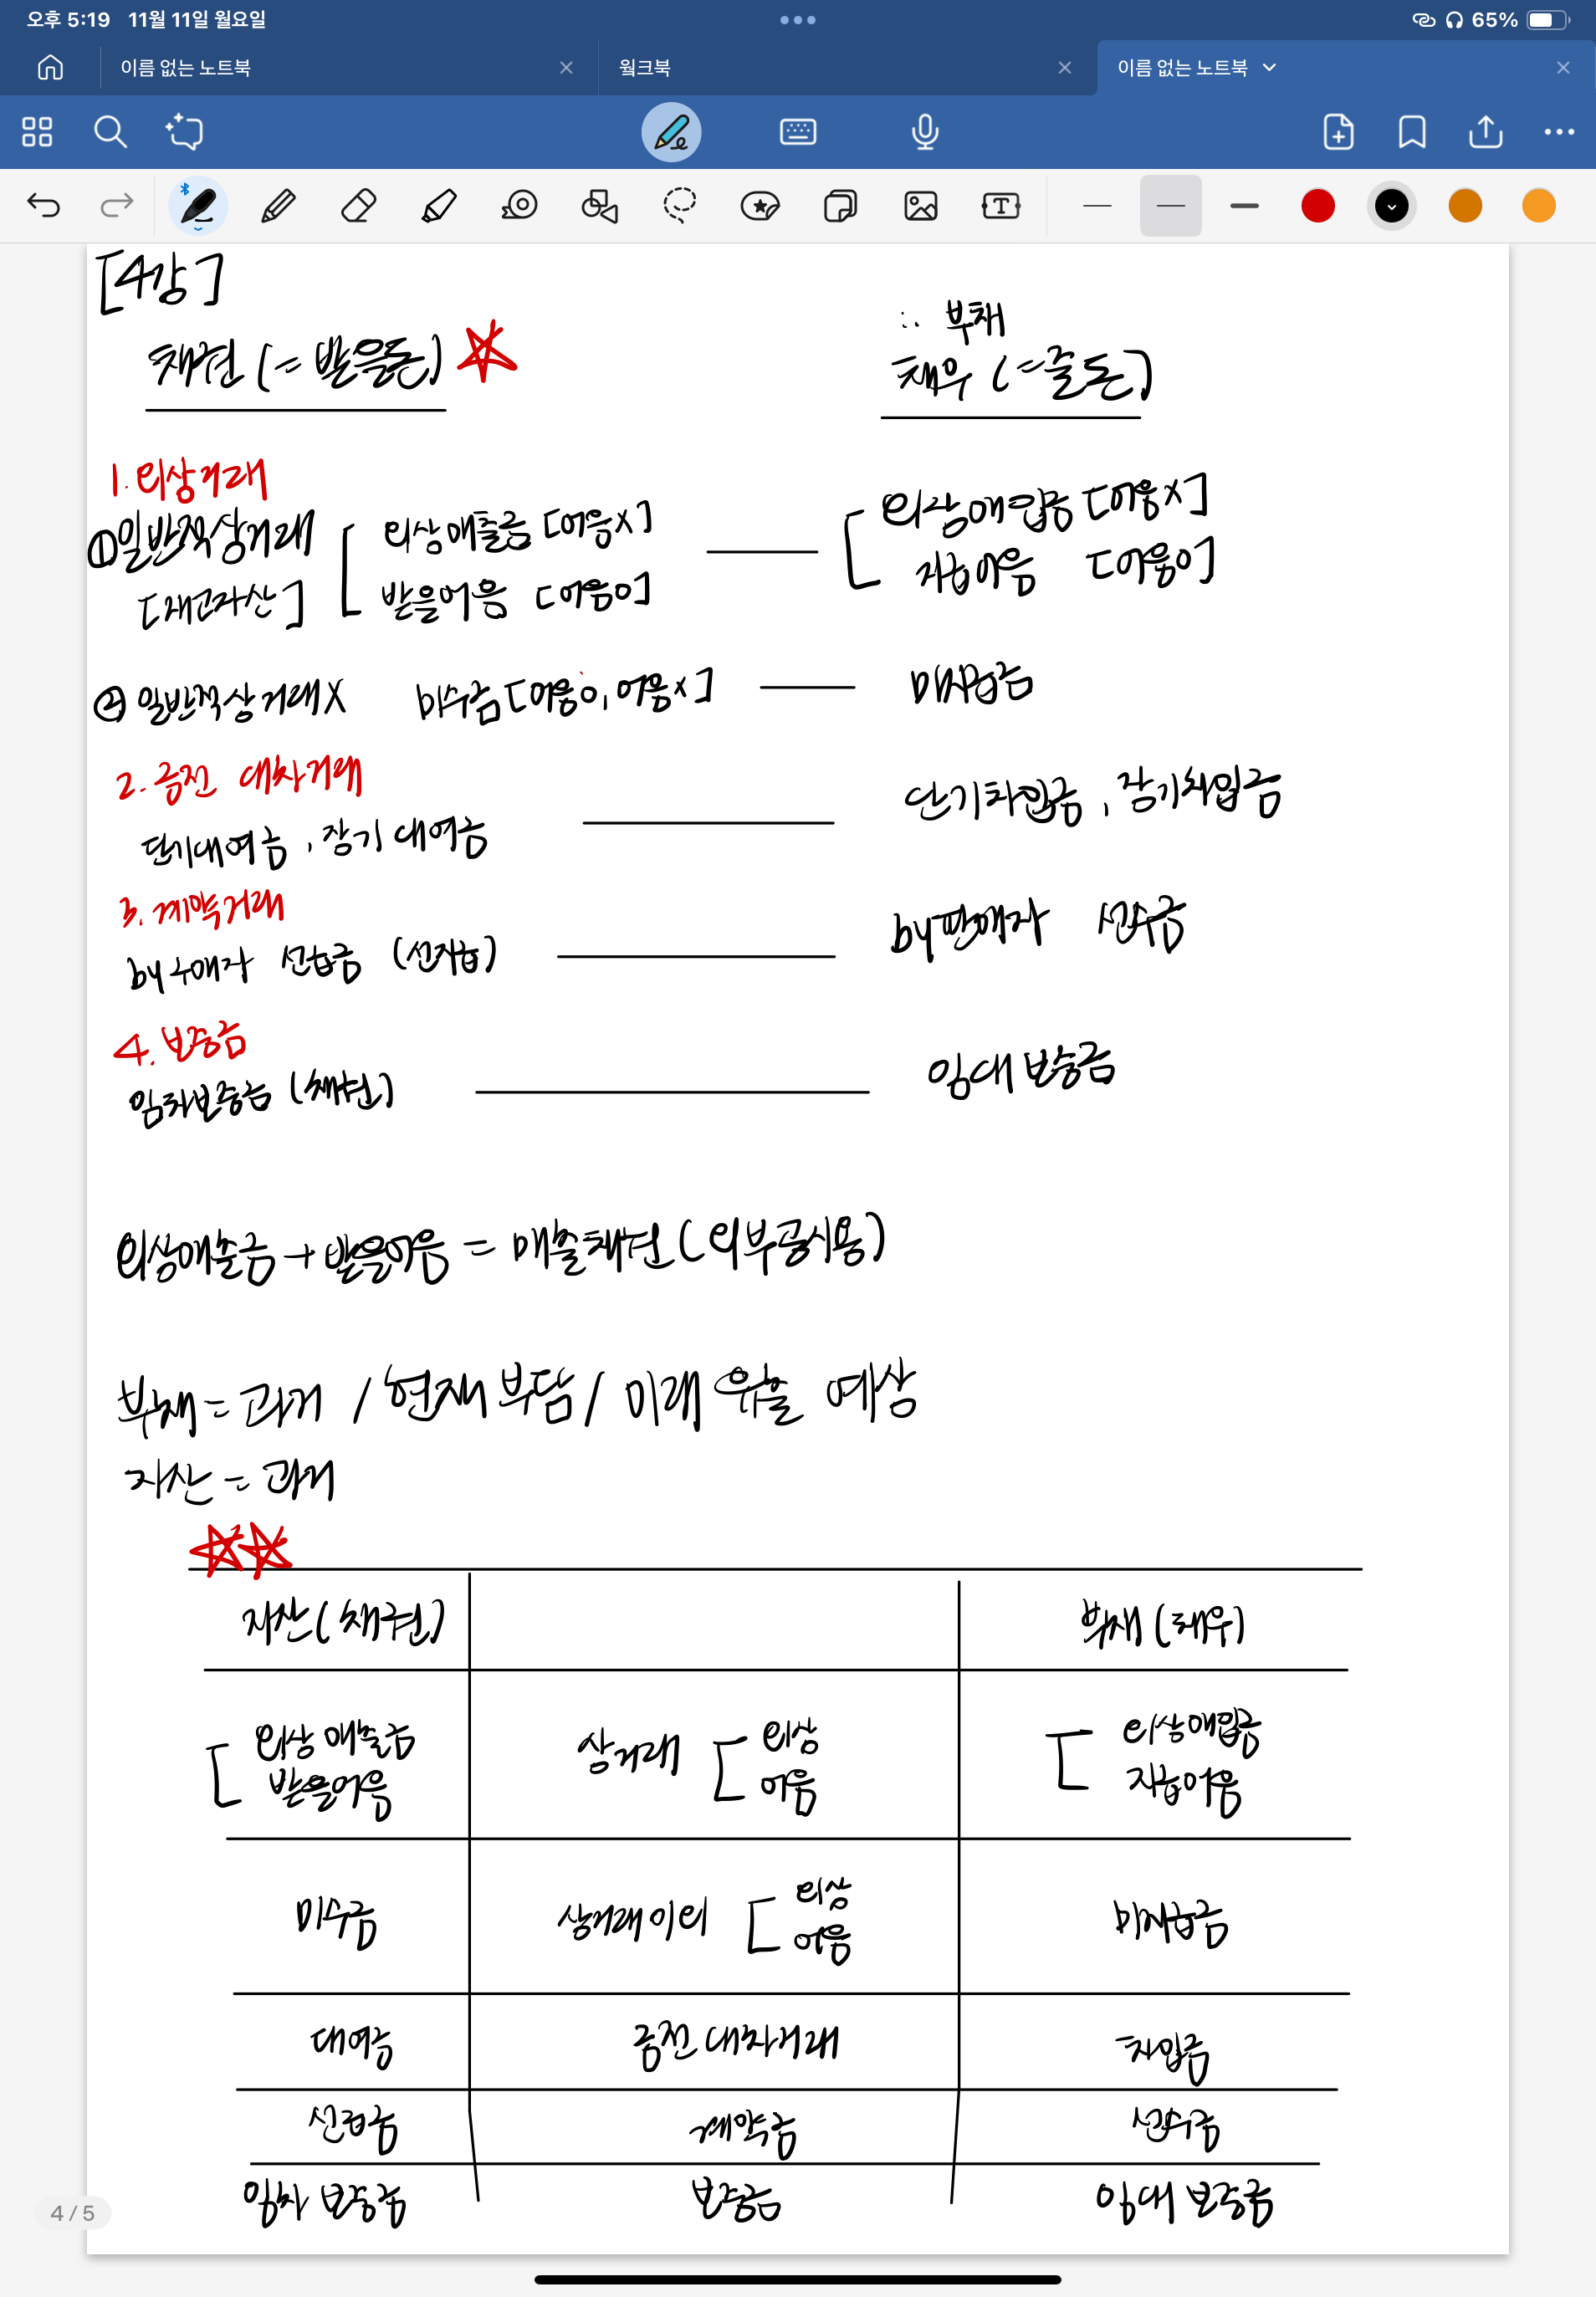 오후 5:19 11월 11일 월요일 65%
이름 없는 노트북 웤크북 이름 없는 노트북
[4강]
∴ 부채
채권 (= 받을돈) 채무 (=줄돈)
1. 외상거래
①일반적상거래 외상매출금 [어음x] 외상매입금 [어음x]
[재고자산] 받을어음 [어음o] 지급어음 [어음o]
② 일반적상거래X 미수금 [어음o, 어음x] 미지급금
2. 금전 대차거래
단기대여금, 장기대여금 단기차입금, 장기차입금
3. 계약거래
by 구매자 선급금 (선지급) by판매자 선수금
4. 보증금
임차보증금 (채권) 임대보증금
외상매출금 + 받을어음 = 매출채권 (외부공시용)
부채 = 과거 / 현재 부담 / 미래 유출 예상
자산 = 과거
자산 (채권) 부채 (채무)
외상매출금 상거래 외상 외상매입금
받을어음 어음 지급어음
미수금 상거래이외 외상 미지급금
어음
대여금 금전대차거래 차입금
선급금 계약금 선수금
임차보증금 보증금 임대보증금
4 / 5